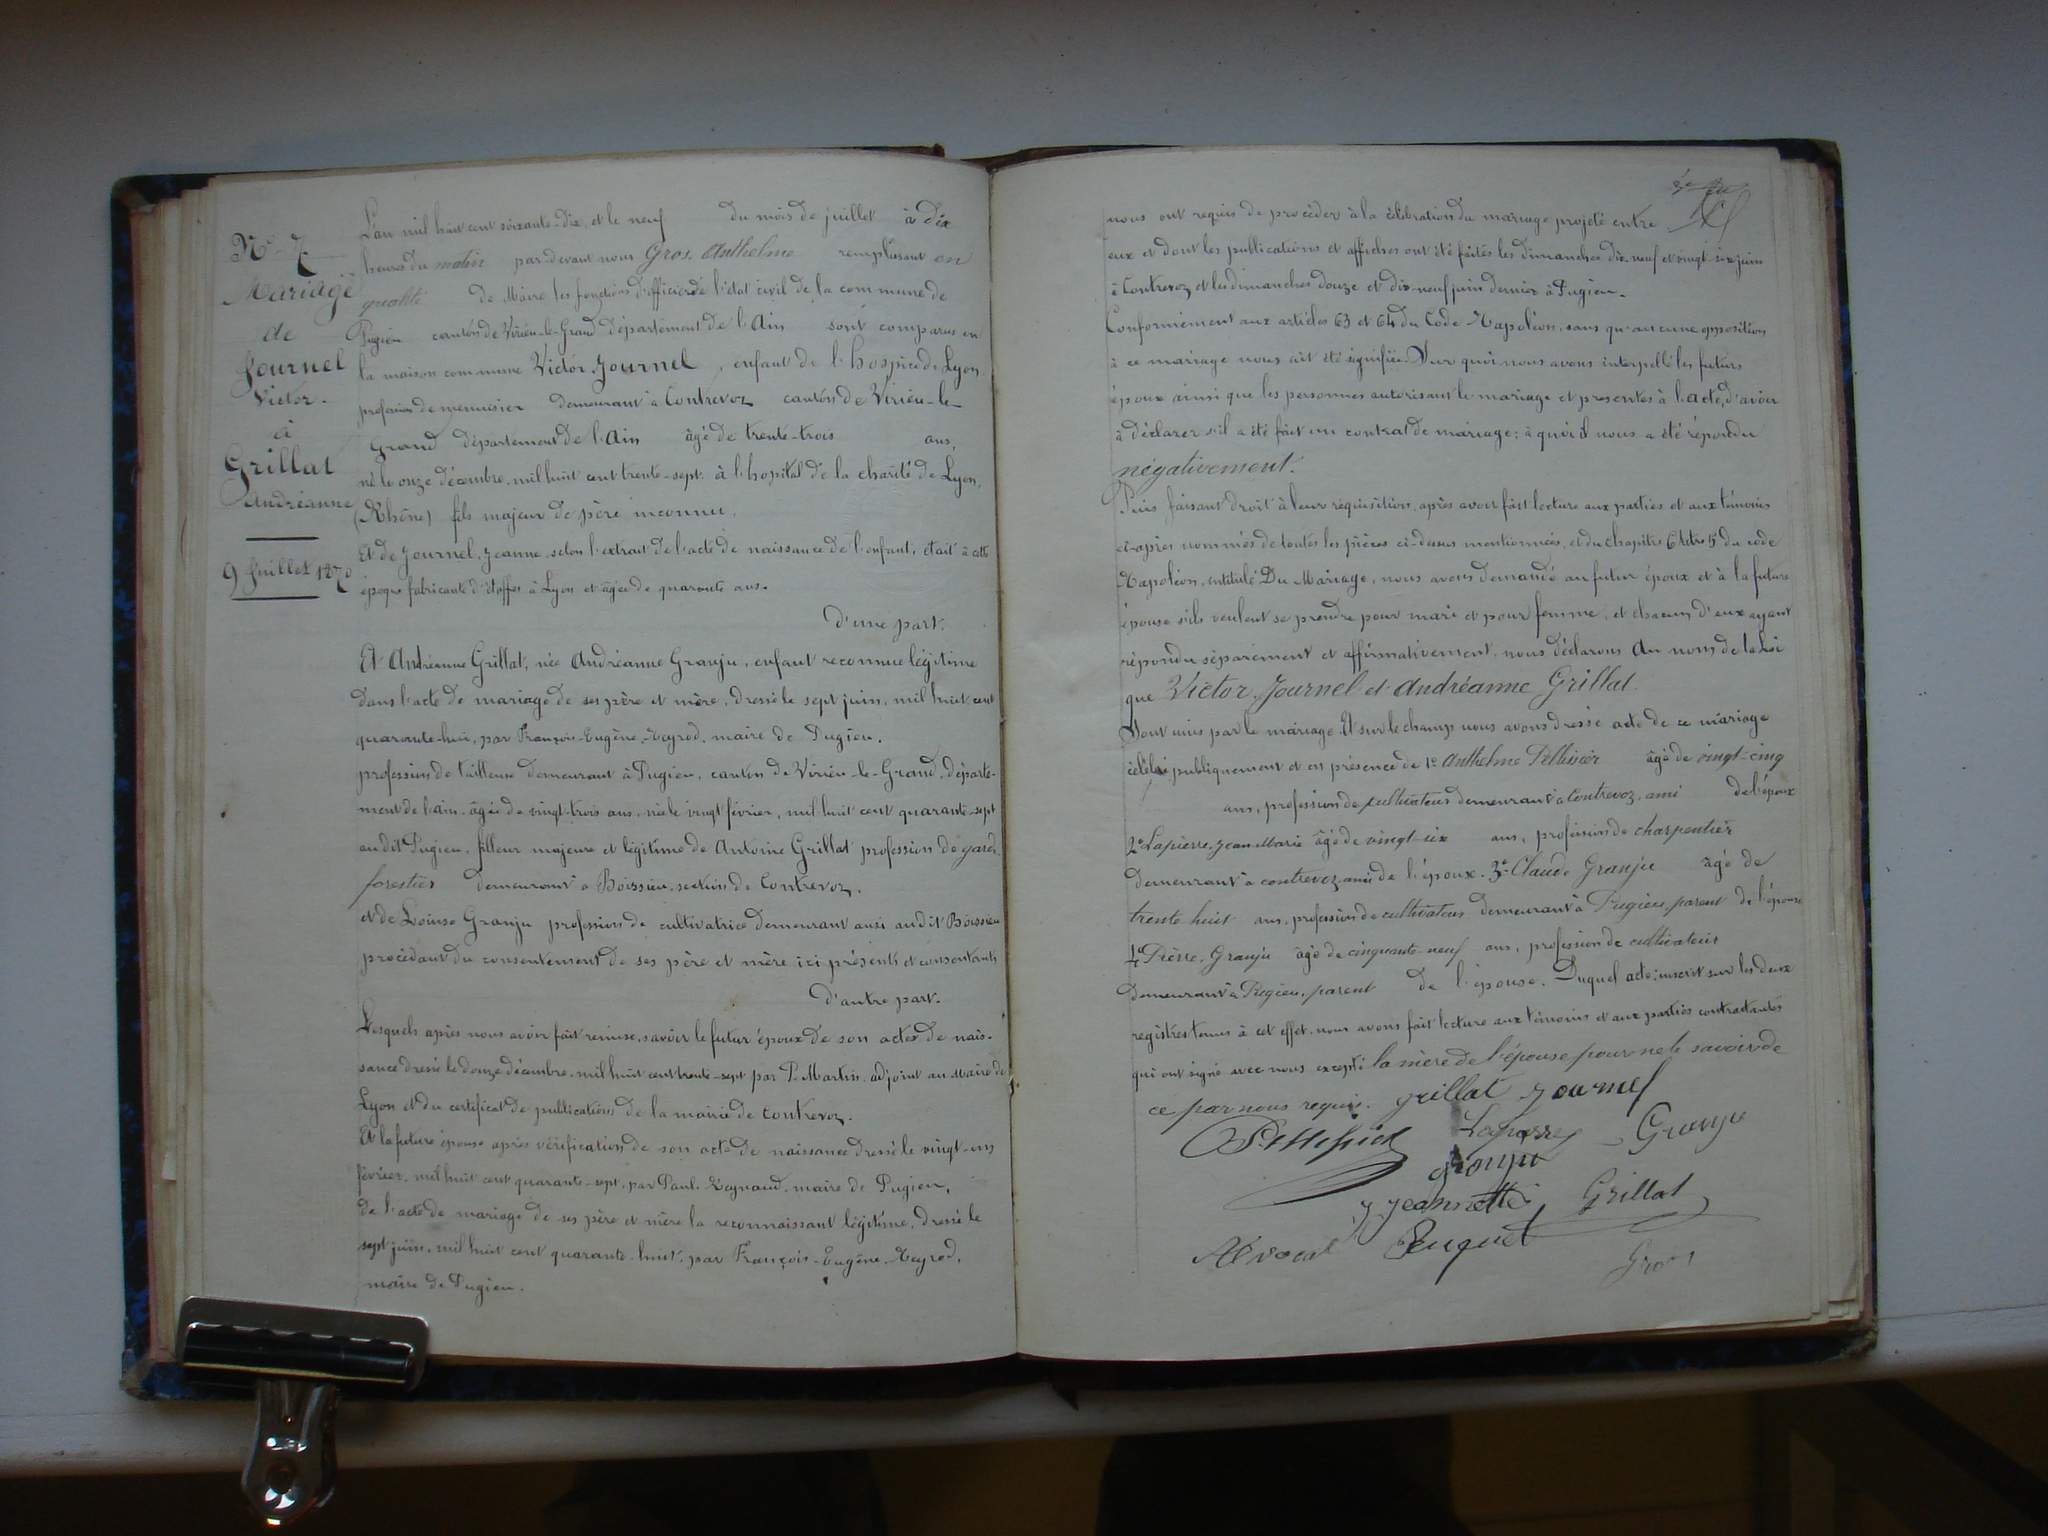 N° 7
Mariage
de
Journel
Victor.
à
Grillat
Andréanne
9 Juillet 1870
L'an mil huit cent soixante-dix, et le neuf du mois de juillet à dix
heures du matin par-devant nous Gros. Anthelme remplissant en
qualité de Maire les fonctions d'officier de l'état civil de la commune de
Pugieu canton de Virieu-le-Grand département de l'Ain sont comparus en
la maison commune Victor Journel, enfant de l'hospice de Lyon
profession de menuisier demeurant à Contrevoz canton de Virieu-le-
Grand département de l'Ain âgé de trente-trois ans,
né le onze décembre, mil huit cent trente-sept à l'hopital de la charité de Lyon,
(Rhône) fils majeur de père inconnu,
Et de Journel, Jeanne, selon l'extrait de l'acte de naissance de l'enfant, était à cette
époque fabricante d'étoffes à Lyon et âgée de quarante ans.
d'une part.
Et Andréanne Grillat, née Andréanne Granju, enfant reconnue légitime
dans l'acte de mariage de ses père et mère, dressé le sept juin, mil huit cent
quarante-huit, par François-Eugène Neyrod, maire de Pugieu.
profession de tailleuse demeurant à Pugieu, canton de Virieu-le-Grand, départe-
ment de l'ain, âgée de vingt-trois ans, née le vingt février, mil huit cent quarante-sept
audit Pugieu, filleur majeure et légitime de Antoine Grillat profession de garde
forestier demeurant à Boissieu, section de Contrevoz,
et de Louise Granju profession de cultivatrice demeurant aussi audit Boissieu
procédant du consentement de ses père et mère ici présents et consentants
d'autre part.
Lesquels après nous avoir fait remise, savoir le futur époux de son actes de nais-
sance dressé le douze décembre, mil huit cent trente-sept par P. Martin, adjoint au Maire de
Lyon et du certificat de publications de la mairie de Contrevoz.
Et la future épouse après vérification de son acte de naissance dressé le vingt-un
février, mil huit cent quarante-sept, par Paul Reynaud, maire de Pugieu,
de l'acte de mariage de ses père et mère la reconnaissant légitime, dressé le
sept juin, mil huit cent quarante-huit, par François-Eugène Neyrod,
maire de Pugieu.
nous ont requis de procéder à la célébration du mariage projeté entre
eux et dont les publications et affiches ont été faites les dimanches dix-neuf et vingt-six juin
à Contrevoz et les dimanches douze et dix-neuf juin dernier à Pugieu.
Conformément aux articles 63 et 64 du Code Napoléon, sans qu'aucune opposition
à ce mariage nous ait été signifiée. Sur quoi nous avons interpellé les futurs
époux ainsi que les personnes autorisant le mariage et présentes à l'acte, d'avoir
à déclarer s'il a été fait un contrat de mariage; à quoi il nous a été répondu
négativement.
Puis faisant droit à leur réquisition, après avoir fait lecture aux parties et aux témoins
ci-après nommés de toutes les pièces ci-dessus mentionnées, et du chapitre 6 titre 5 du code
Napoléon, intitulé Du Mariage, nous avons demandé au futur époux et à la future
épouse s'ils veulent se prendre pour mari et pour femme, et chacun d'eux ayant
répondu séparément et affirmativement, nous déclarons au nom de la Loi
que Victor Journel et Andréanne Grillat
Sont unis par le mariage. Et sur le champ nous avons dressé acte de ce mariage
célébré publiquement et en présence de 1° Anthelme Pellissier âgé de vingt-cinq
ans, profession de cultivateur demeurant à Contrevoz, ami de l'époux
2° Lapierre, Jean Marie âgé de vingt-six ans, profession de charpentier
demeurant à contrevoz, ami de l'époux. 3° Claude Granju âgé de
trente huit ans, profession de cultivateur demeurant à Pugieu, parent de l'épouse
4° Pierre, Granju âgé de cinquante-neuf ans, profession de cultivateur
demeurant à Pugieu, parent de l'épouse. Duquel acte, inscrit sur les deux
registres tenus à cet effet, nous avons fait lecture aux témoins et aux parties contractantes
qui ont signé avec nous excepté la mère de l'épouse pour ne le savoir de
ce par nous requis. Grillat Journel
Pellissier Lapierre Granju
Granju
Jeannette Grillat
Révocat Penquet
Gros